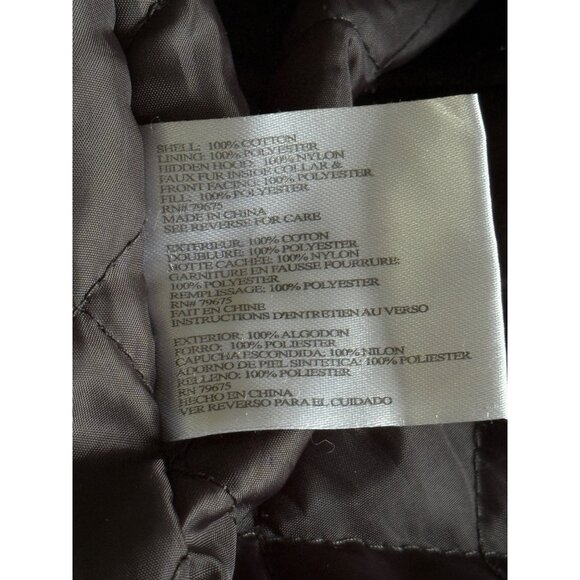 SHELL: 100% COTTON
LINING: 100% POLYESTER
HIDDEN HOOD: 100% NYLON
FAUX FUR INSIDE COLLAR &
FRONT FACING: 100% POLYESTER
FILL: 100% POLYESTER
RN# 79675
MADE IN CHINA
SEE REVERSE FOR CARE
EXTERIEUR: 100% COTON
DOUBLURE: 100% POLYESTER
MOTTE CACHÉE: 100% NYLON
GARNITURE EN FAUSSE POURRURE:
100% POLYESTER
REMPLISSAGE: 100% POLYESTER
RN# 79675
FAIT EN CHINE
INSTRUCTIONS D'ENTRETIEN AU VERSO
EXTERIOR: 100% ALGODON
FORRO: 100% POLIESTER
CAPUCHA ESCONDIDA: 100% NILON
ADORNO DE PIEL SINTETICA: 100% POLIESTER
RELLENO: 100% POLIESTER
RN 79675
HECHO EN CHINA
VER REVERSO PARA EL CUIDADO